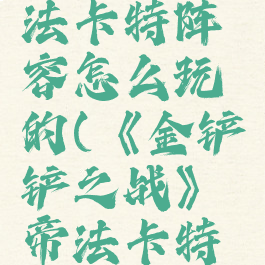 法卡特阵
容怎么玩
的(《金铲
铲之战》
帝法卡特